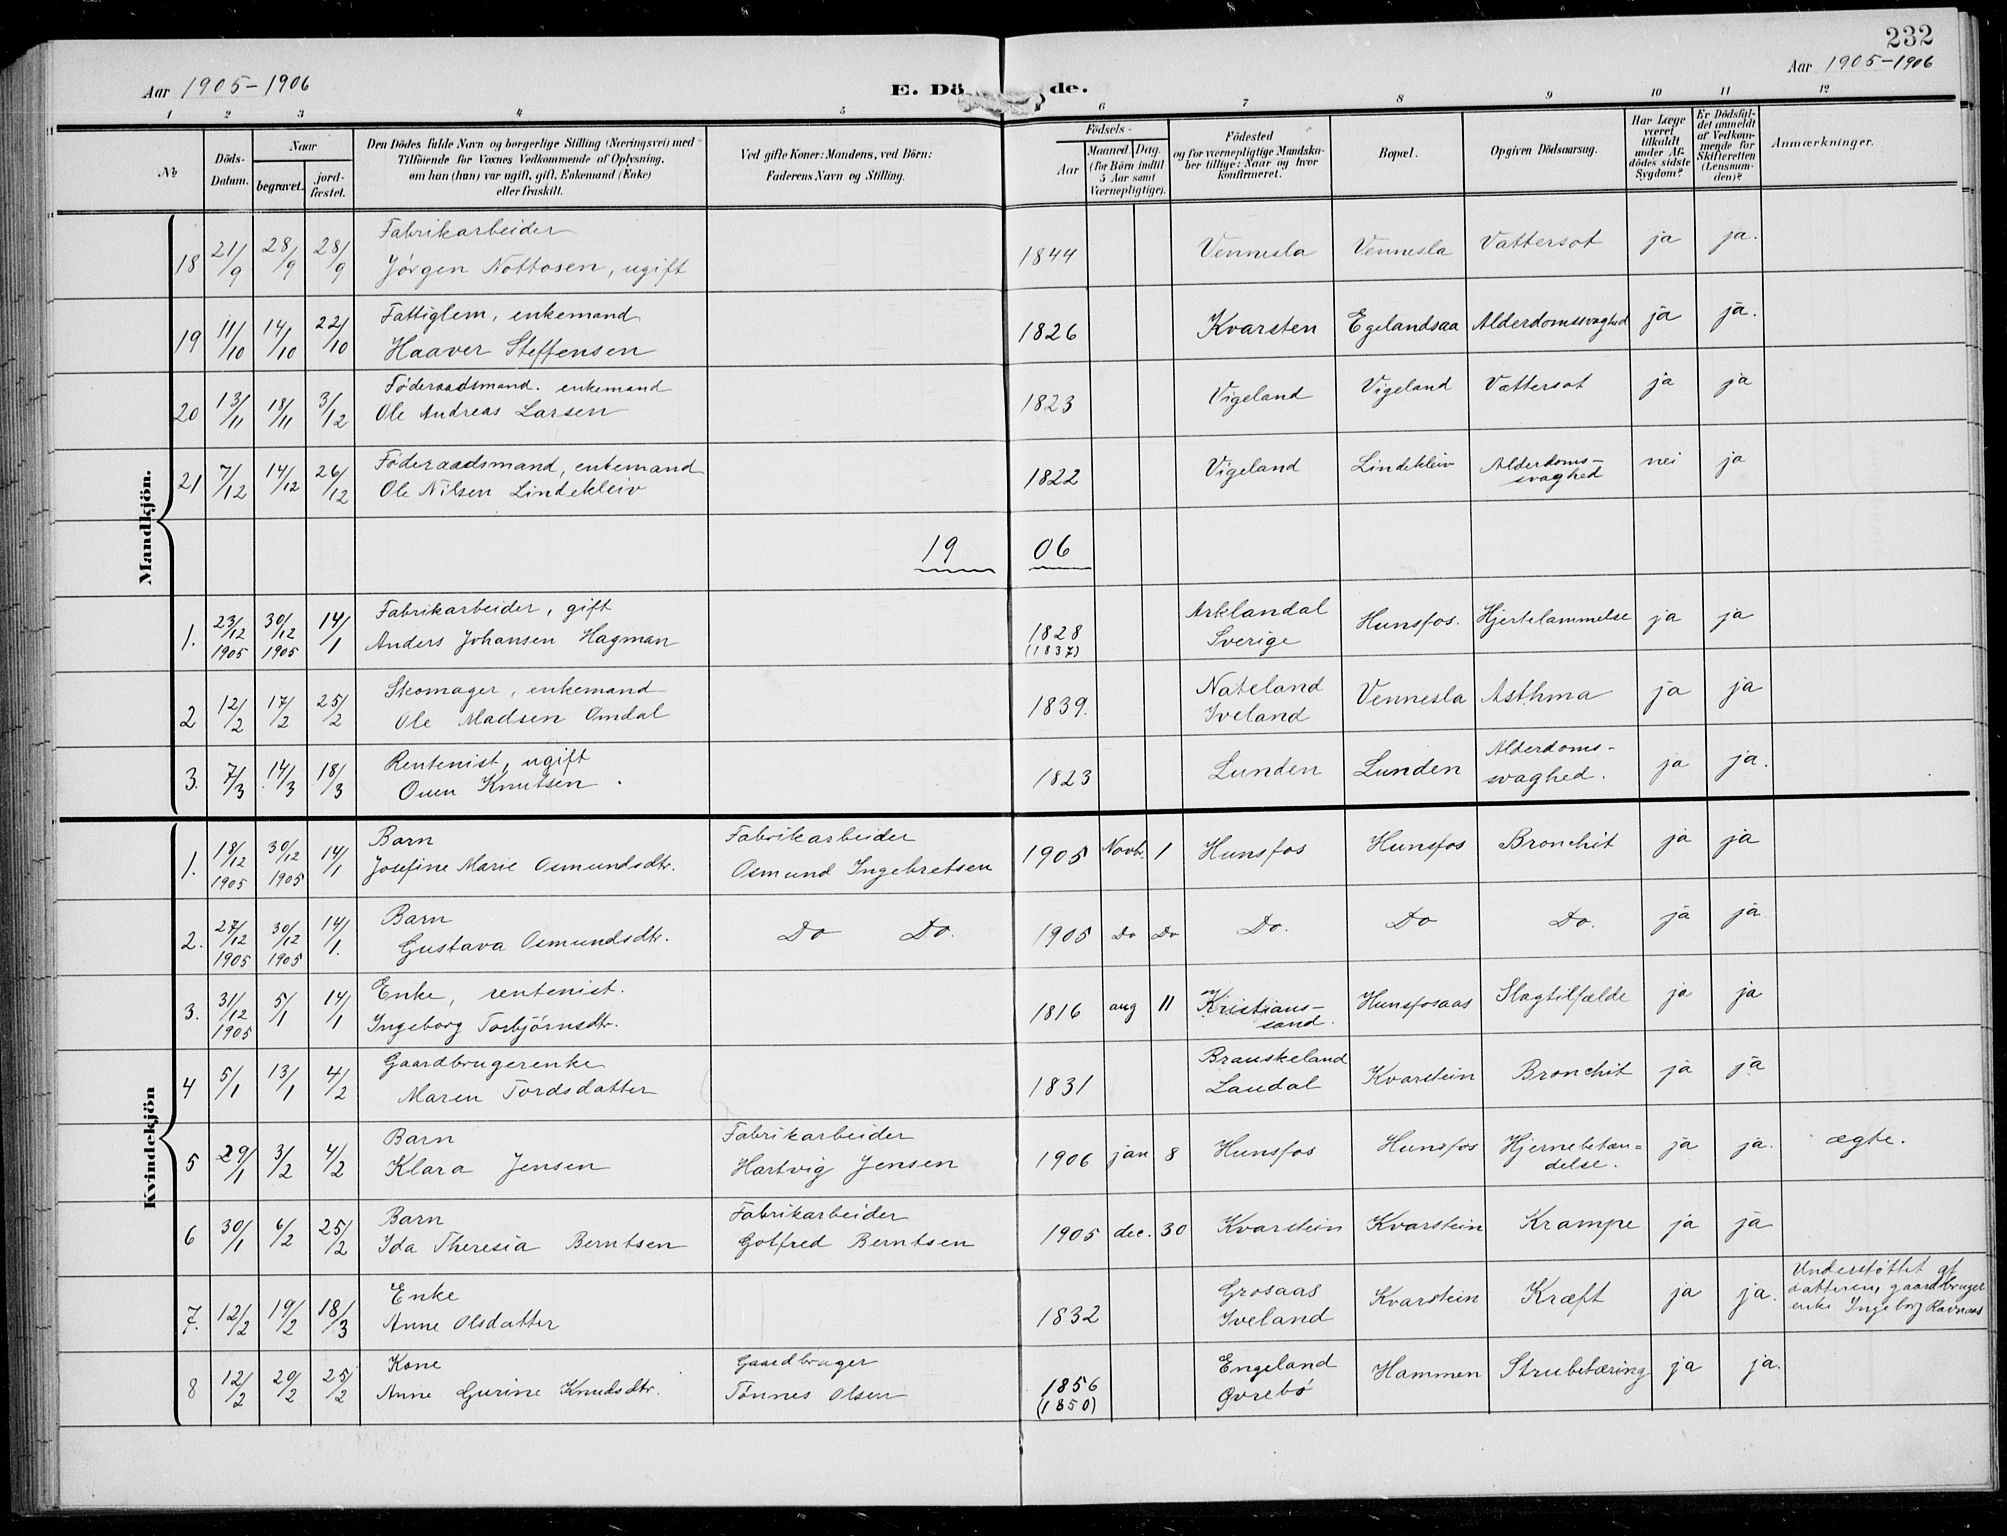 232
Aar 1905-1906
E. Dö de.
Aar 1905-1906
1 2 3 4 5 6 7 8 9 10 11 12
№
Döds-Datum.
Naar
begravet.
jord-fæstet.
Den Dödes fulde Navn og borgerlige Stilling (Næringsvei) med
Tilföiende for Voxnes Vedkommende af Oplysning,
om han (hun) var ugift, gift, Enkemand (Enke)
eller fraskilt.
Ved gifte Koner: Mandens, ved Börn:
Faderens Navn og Stilling.
Födsels-
Aar
Maaned. Dag.
(for Börn indtil
5 Aar samt
Værnepligtige).
Födested
og for værnepligtige Mandska-
ber tillige: Naar og hvor
konfirmeret.
Bopæl.
Opgiven Dödsaarsag.
Har Læge
været
tilkaldt
under Af-
dödes sidste
Sygdom?
Er Dödsfal-
det anmeldt
af Vedkom-
mende for
Skifteretten
(Lensman-
den)?
Anmærkninger.
Mandkjön.
18 21/9 28/9 28/9 Fabrikarbeider
Jørgen Nottosen, ugift 1844 Vennesla Vennesla Vattersot ja ja.
19 11/10 14/10 22/10 Fattiglem, enkemand
Haaver Steffensen 1826 Kvarsten Egelandsaa Alderdomssvaghed ja ja.
20 13/11 18/11 3/12 Føderaadsmand. enkemand
Ole Andreas Larsen 1823 Vigeland Vigeland Vattersot ja ja
21 7/12 14/12 26/12 Føderaadsmand, enkemand
Ole Nilsen Lindekleiv 1822 Vigeland Lindekleiv Alderdoms-
svaghed nei ja
19 06
1. 23/12 1905 30/12 1905 14/1 Fabrikarbeider, gift
Anders Johansen Hagman 1828 (1837) Arklandal
Sverige Hunsfos. Hjertelammelse ja ja
2 12/2 17/2 25/2 Skomager, enkemand
Ole Madsen Omdal 1839. Nateland
Iveland Vennesla Asthma ja ja
3. 7/3 14/3 18/3 Rentenist, ugift
Ouen Knutsen. 1823 Lunden Lunden Alderdoms-
svaghed. ja ja.
Kvindekjön
1. 18/12 1905 30/12 1905 14/1 Barn
Josefine Marie Osmundsdtr. Fabrikarbeider
Osmund Ingebretsen 1905 Novbr. 1 Hunsfos Hunsfos Bronchit ja ja
2. 27/12 1905 30/12 1905 14/1. Barn
Gustava Osmundsdtr. Do Do. 1905 Do Do Do. Do Do. ja ja
3. 31/12 1905 5/1 14/1 Enke, rentenist.
Ingeborg Torbjørnsdtr. 1816 aug 11 Kristians-
sand. Hunsfosaas Slagtilfælde ja ja
4 5/1 13/1 4/2 Gaardbrugerenke
Maren Tordsdatter 1831 Brauskeland
Laudal Kvarstein Bronchit ja ja
5 29/1 3/2 4/2 Barn
Klara Jensen Fabrikarbeider
Hartvig Jensen 1906 jan 8 Hunsfos Hunsfos Hjernebetæn=
delse. ja ja. ægte.
6 30/1 6/2 25/2 Barn
Ida Theresia Berntsen Fabrikarbeider
Gotfred Berntsen 1905 dec. 30 Kvarstein Kvarstein Krampe ja ja
7. 12/2 19/2 18/3 Enke
Anne Olsdatter 1832 Grosaas
Iveland Kvarstein Kræft ja ja. Understøttet af
datteren, gaardbruger
enke Ingeborg Ravnaas
8 12/2 20/2 25/2 Kone
Anne Gurine Knudsdtr. Gaardbruger
Tønnes Olsen 1856 (1850) Engeland
Øvrebø Hammen Strubetæring ja ja.